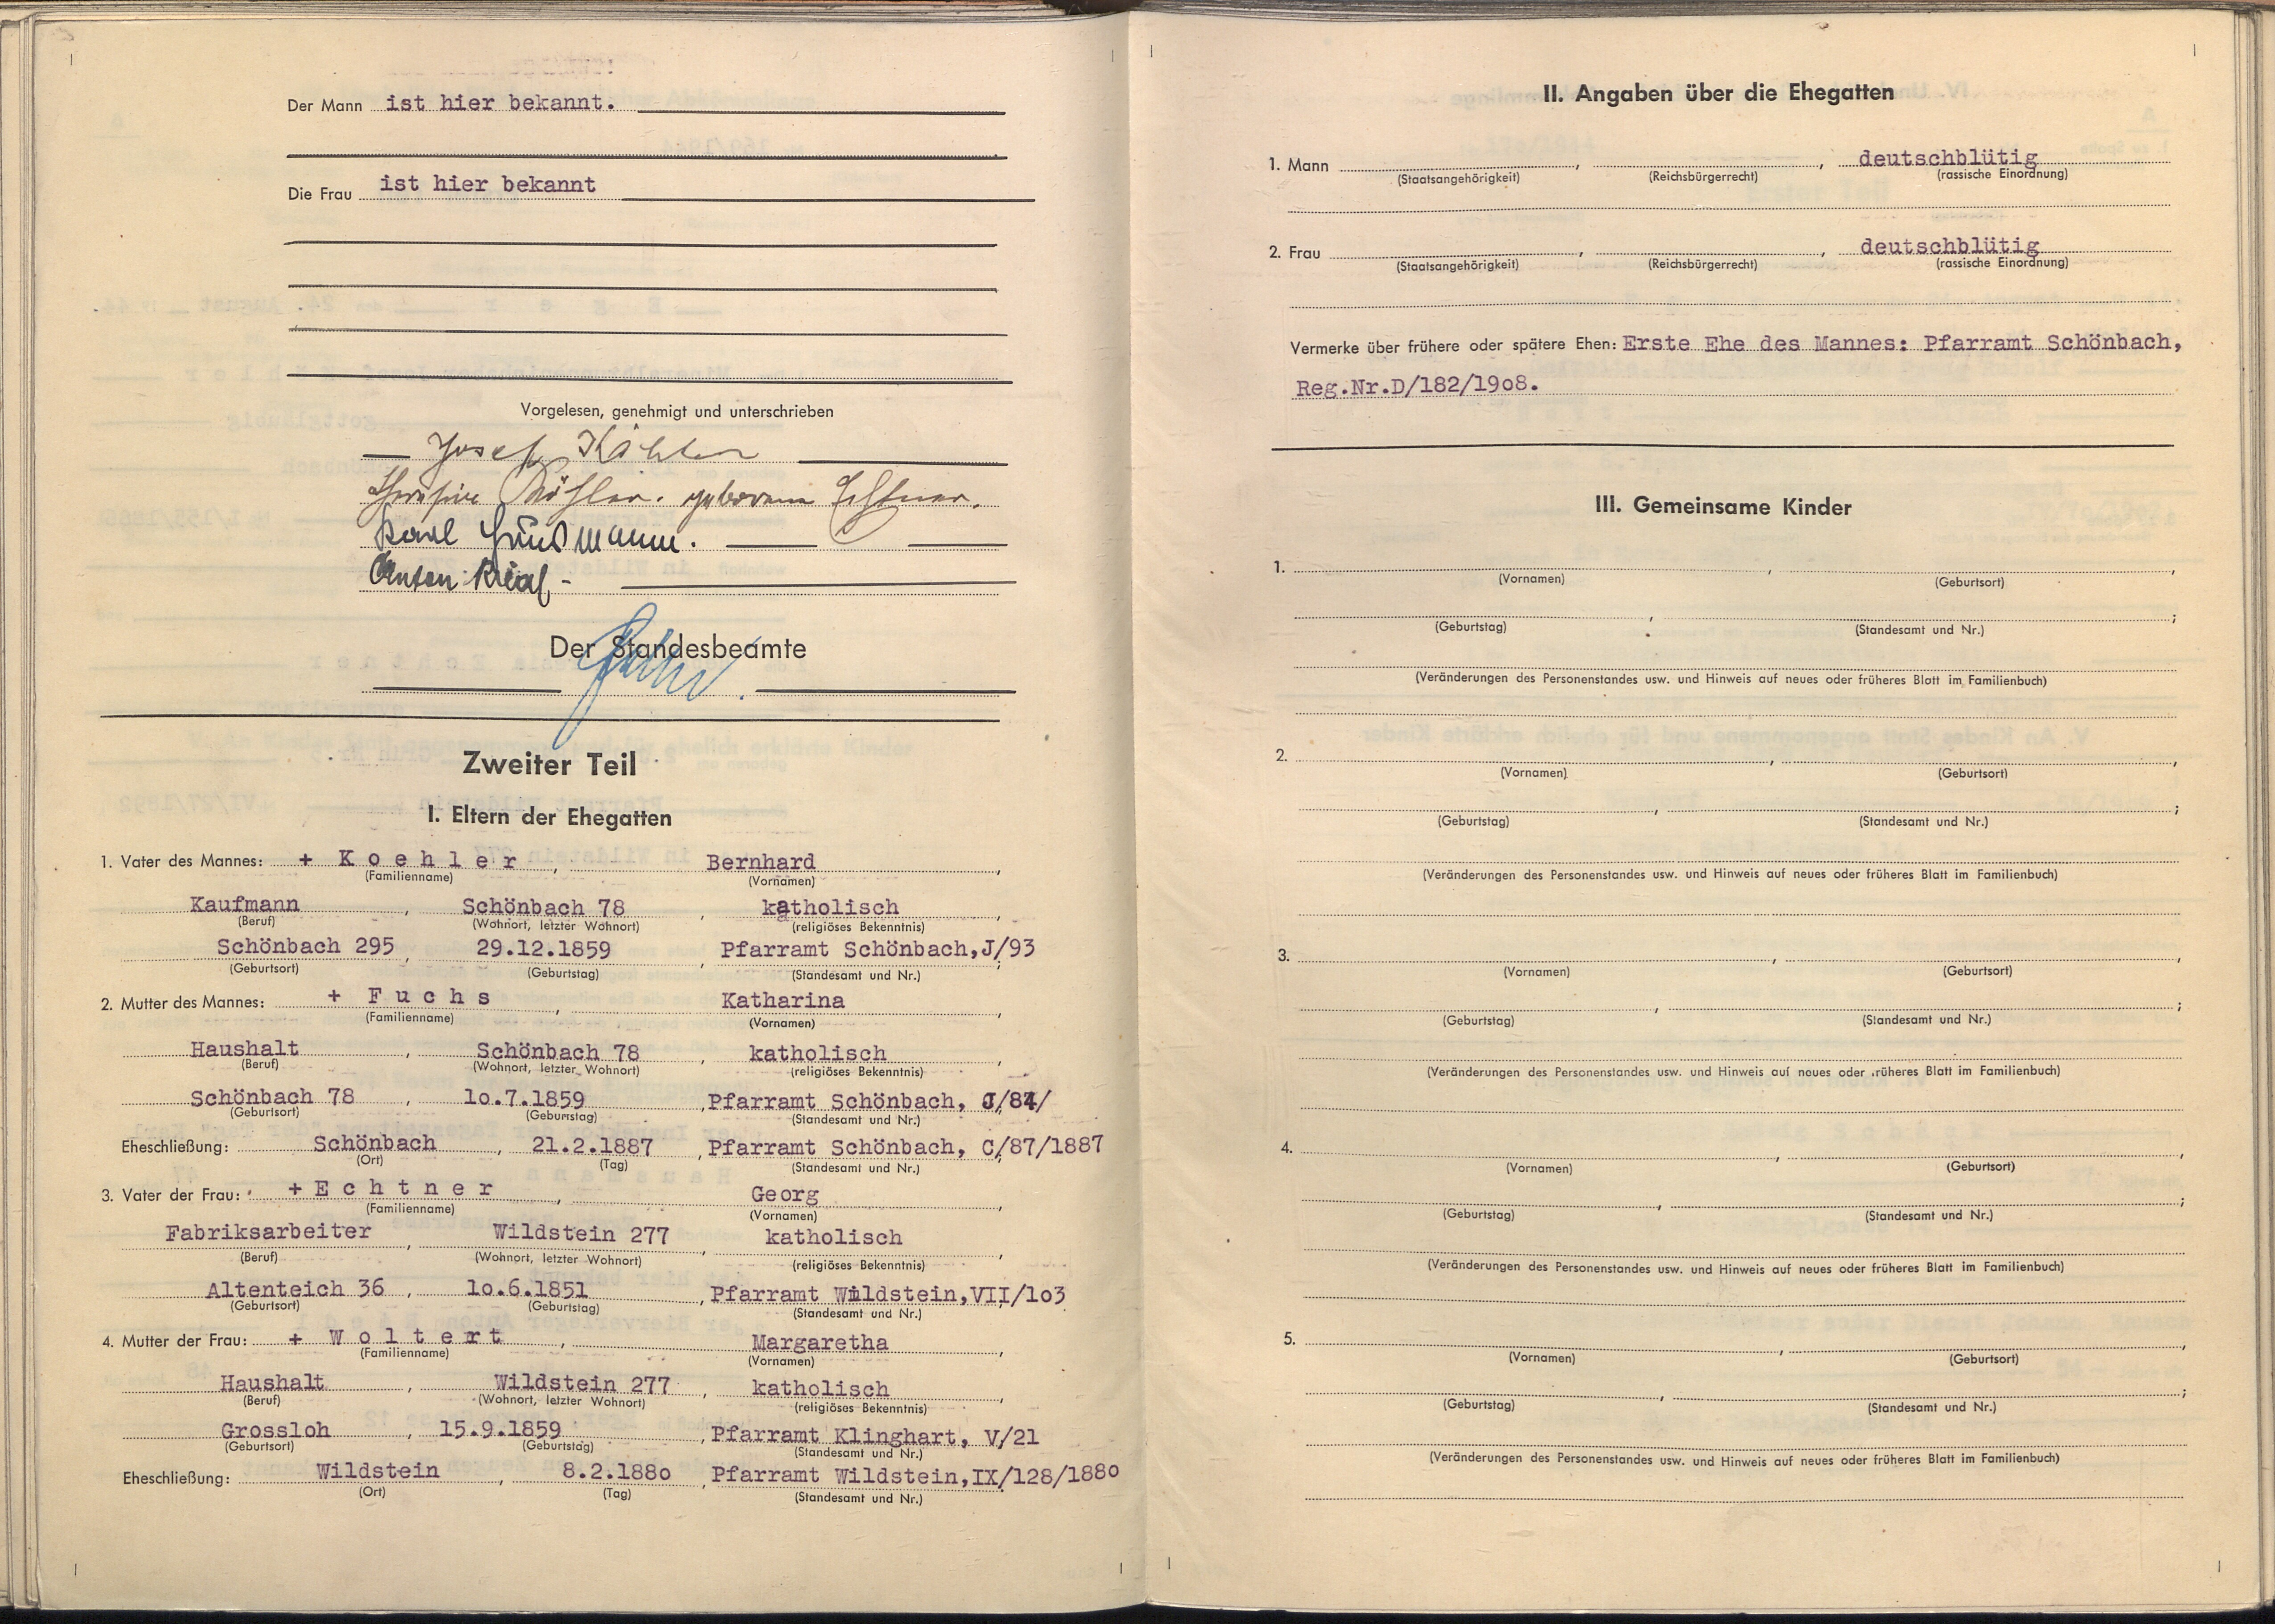 Der Mann ist hier bekannt.
Die Frau ist hier bekannt
Vorgelesen, genehmigt und unterschrieben
Josef Köhler
Köhler. geborene Echtner.
Karl Hausmann.
Anton
Der Standesbeamte
Zweiter Teil
I. Eltern der Ehegatten
1. Vater des Mannes: + K o e h l e r , Bernhard ,
(Familienname) (Vornamen)
Kaufmann , Schönbach 78 , katholisch ,
(Beruf) (Wohnort, letzter Wohnort) (religiöses Bekenntnis)
Schönbach 295 , 29.12.1859 , Pfarramt Schönbach,J/93
(Geburtsort) (Geburtstag) (Standesamt und Nr.)
2. Mutter des Mannes: + F u c h s , Katharina ,
(Familienname) (Vornamen)
Haushalt , Schönbach 78 , katholisch ,
(Beruf) (Wohnort, letzter Wohnort) (religiöses Bekenntnis)
Schönbach 78 , 1o.7.1859 , Pfarramt Schönbach, J/84/
(Geburtsort) (Geburtstag) (Standesamt und Nr.)
Eheschließung: Schönbach , 21.2.1887 , Pfarramt Schönbach, C/87/1887
(Ort) (Tag) (Standesamt und Nr.)
3. Vater der Frau: + E c h t n e r , Georg ,
(Familienname) (Vornamen)
Fabriksarbeiter , Wildstein 277 , katholisch ,
(Beruf) (Wohnort, letzter Wohnort) (religiöses Bekenntnis)
Altenteich 36 , 1o.6.1851 , Pfarramt Wildstein,VII/1o3
(Geburtsort) (Geburtstag) (Standesamt und Nr.)
4. Mutter der Frau: + W o l t e r t , Margaretha ,
(Familienname) (Vornamen)
Haushalt , Wildstein 277 , katholisch ,
(Beruf) (Wohnort, letzter Wohnort) (religiöses Bekenntnis)
Grossloh , 15.9.1859 , Pfarramt Klinghart, V/21
(Geburtsort) (Geburtstag) (Standesamt und Nr.)
Eheschließung: Wildstein , 8.2.188o , Pfarramt Wildstein,IX/128/188o
(Ort) (Tag) (Standesamt und Nr.)
II. Angaben über die Ehegatten
1. Mann , , deutschblütig
(Staatsangehörigkeit) (Reichsbürgerrecht) (rassische Einordnung)
2. Frau , , deutschblütig
(Staatsangehörigkeit) (Reichsbürgerrecht) (rassische Einordnung)
Vermerke über frühere oder spätere Ehen: Erste Ehe des Mannes: Pfarramt Schönbach,
Reg.Nr.D/182/19o8.
III. Gemeinsame Kinder
1. , ,
(Vornamen) (Geburtsort)
, ;
(Geburtstag) (Standesamt und Nr.)
(Veränderungen des Personenstandes usw. und Hinweis auf neues oder früheres Blatt im Familienbuch)
2. , ,
(Vornamen) (Geburtsort)
, ;
(Geburtstag) (Standesamt und Nr.)
(Veränderungen des Personenstandes usw. und Hinweis auf neues oder früheres Blatt im Familienbuch)
3. , ,
(Vornamen) (Geburtsort)
, ;
(Geburtstag) (Standesamt und Nr.)
(Veränderungen des Personenstandes usw. und Hinweis auf neues oder früheres Blatt im Familienbuch)
4. , ,
(Vornamen) (Geburtsort)
, ;
(Geburtstag) (Standesamt und Nr.)
(Veränderungen des Personenstandes usw. und Hinweis auf neues oder früheres Blatt im Familienbuch)
5. , ,
(Vornamen) (Geburtsort)
, ;
(Geburtstag) (Standesamt und Nr.)
(Veränderungen des Personenstandes usw. und Hinweis auf neues oder früheres Blatt im Familienbuch)